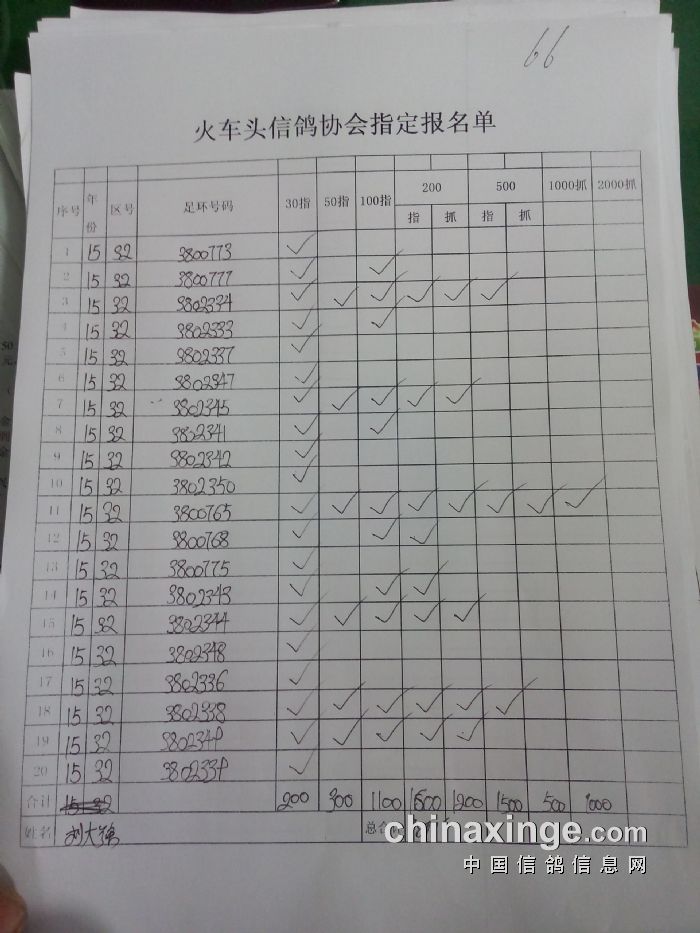 66
火车头信鸽协会指定报名单
序号 年份 区号 足环号码 30指 50指 100指 200 500 1000抓 2000抓
指 抓 指 抓
1 15 32 3800773 ✓
2 15 32 3800777 ✓ ✓
3 15 32 3802334 ✓ ✓ ✓ ✓ ✓ ✓
4 15 32 3802333 ✓ ✓
5 15 32 3802337 ✓
6 15 32 3802347 ✓
7 15 32 3802345 ✓ ✓ ✓ ✓ ✓
8 15 32 3802341 ✓ ✓
9 15 32 3802342 ✓
10 15 32 3802350 ✓
11 15 32 3800765 ✓ ✓ ✓ ✓ ✓ ✓ ✓ ✓
12 15 32 3800768 ✓ ✓ ✓
13 15 32 3800775 ✓
14 15 32 3802343 ✓ ✓ ✓
15 15 32 3802344 ✓ ✓ ✓ ✓ ✓
16 15 32 3802348 ✓
17 15 32 3802336 ✓
18 15 32 3802338 ✓ ✓ ✓ ✓ ✓ ✓
19 15 32 3802349 ✓ ✓ ✓ ✓ ✓
20 15 32 3802339 ✓
合计 15 32 200 300 1100 1600 1200 1500 500 1000
姓名 刘大强 总合
chinaxinge.com
中国信鸽信息网